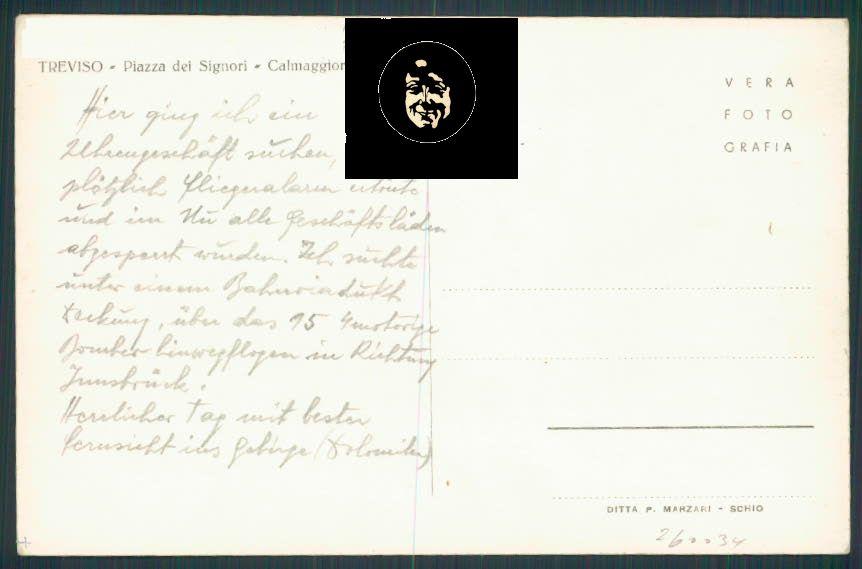 TREVISO - Piazza dei Signori - Calmaggior
Hier ging ich ein
Uhrengeschäft suchen,
plötzlich Fliegeralarm ertönte
und im Nu alle Geschäftsläden
abgesperrt wurden. Ich suchte
unter einem Bahnviadukt
Deckung, über das 95 4motorige
Bomber hinwegflogen in Richtung
Innsbruck.
Herrlicher Tag mit bester
Fernsicht ins Gebirge (Dolomiten)
VERA
FOTO
GRAFIA
DITTA P. MARZARI - SCHIO
260034